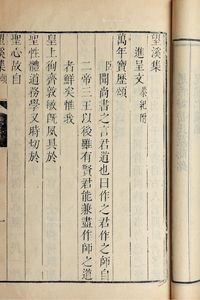 望溪集
進呈文 奏紀附
萬年寶歷頌
臣聞尚書之言君道也曰作之君作之師自
二帝三王以後雖有賢君能兼盡作師之道
者鮮矣惟我
皇上徇齊敦敏既夙具於
聖性體道務學又時切於
聖心故自
望溪集 頌